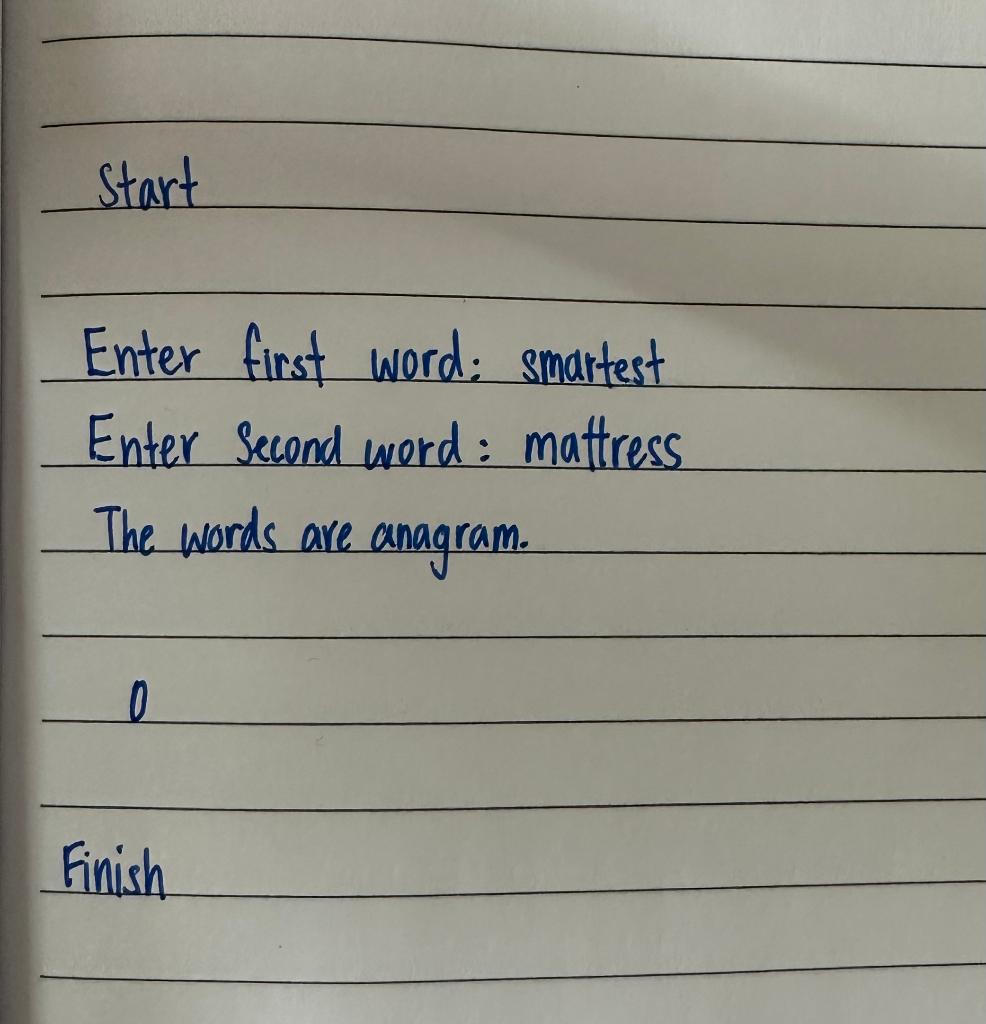 Start
Enter first word: smartest
Enter Second word: mattress
The words are anagram.
0
Finish